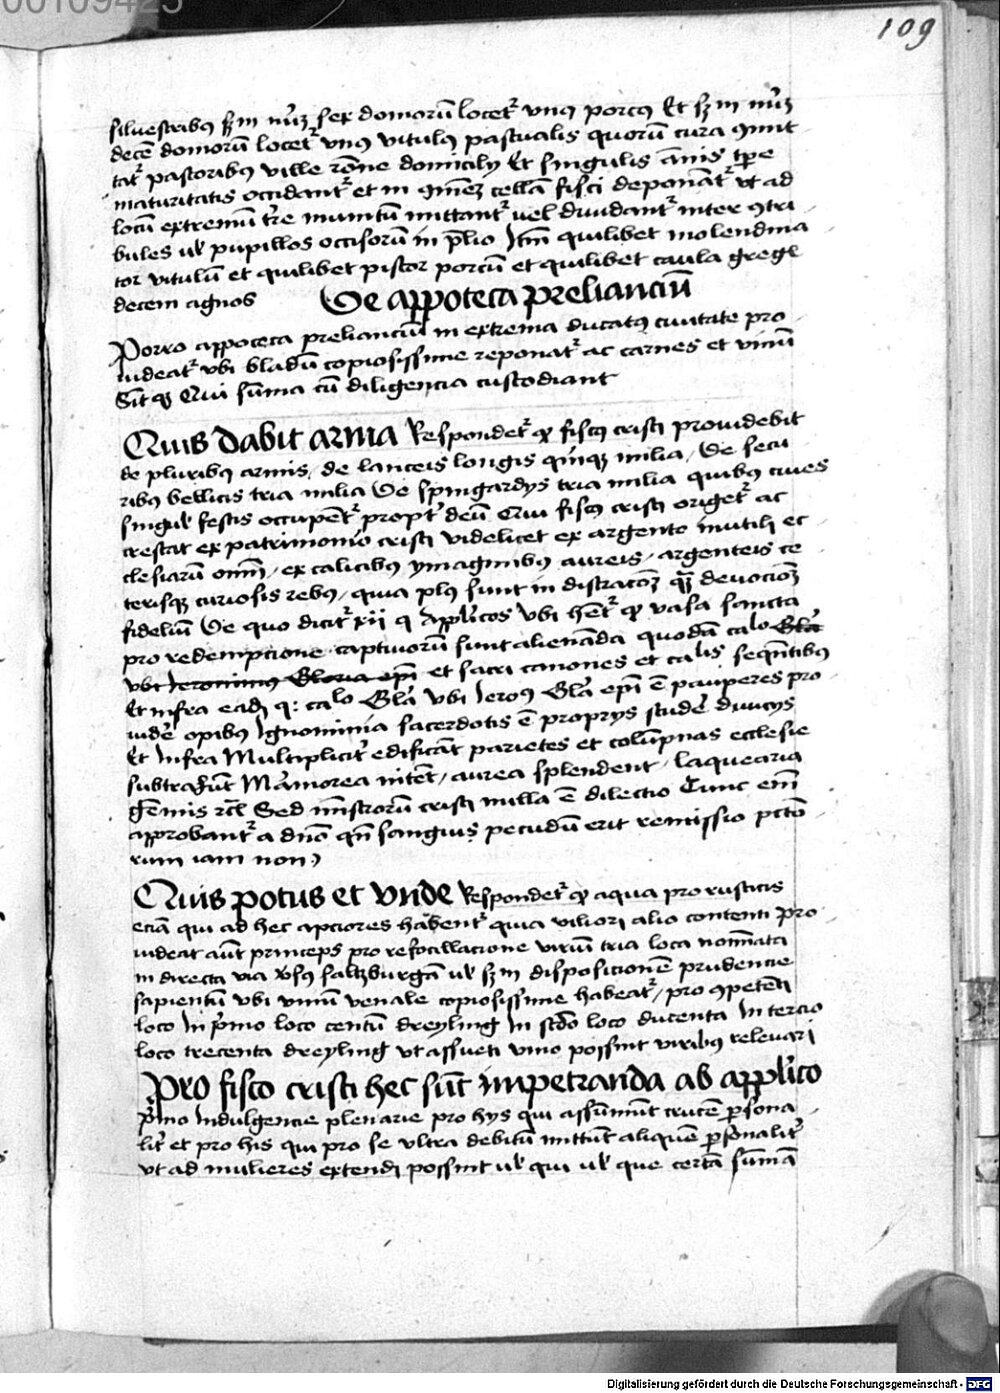 00109425
109
silvestribus scdm nuz sex domorū locet᷒ unus porcus Et scdm nuz
decē domorū locet᷒ unus vitulus pastualis quorū cura gmit
tat᷒ pastoribus ville rōne domicilij Et singulis ānis tpe
maturitatis occidant᷒ et in gmēz cellā fisci deponāt᷒ vt ad
locū extremū tr̄e munitū mittant᷒ vel diuidant᷒ inter gtri
bules ul pupillos occisorū in p̄lio Itm̄ quilibet molendina
tor vitulū et quilibet pistor porcū et quilibet caula gregl
decem agnos De appoteca preliancium
Porro appoteca prelianciū in extrema ducatus ciuitate pro
uideat᷒ vbi bladū copiosissime reponat᷒ ac carnes et vinū
Sitqz Qui sūma cū diligencia custodiant
Quis dabit arma Respondet᷒ qz fiscus cristi prouidebit
de pluribus armis, de lanceis longis quīqz milia, De secu
ribus bellicis tria milia De spingardys tria milia quibus ciues
singul festis occupēt᷒ propt᷒ deū Qui fiscus cristi origet᷒ ac
crescat ex patrimonio cristi videlicet ex argento inutili ec
clesiarū om̄i, ex calicibus ymaginibus aureis, argenteis ce
terisqz curiosis rebus, quia plus sunt in distractōez qz devocioz
fideliū De quo dicit᷒ xii q Applicos Vbi hēt᷒ qz vasa sancta
pro redempcione captiuorū sunt alienāda quodā calo Gla
vbi Ieronimus Gloria epī et sacri canones et calis sequētibus
Et infra eadz q: calo Gla vbi Ieroꝰ Gla epī ē pauperes pro
uidē opibus Ignominia sacerdotis ē proprys studē diuicys
Et Infra Multiplicit᷒ edificāt parietes et colūpnas ecclesie
subtrahūt Marmorea nitēt, aurea splendent, laquearia
gēmis rcl Sed mīstrorū cristi nulla ē dilectio Tunc em̄
approbant᷒ a dn̄o qn̄ sanguis pecudū erit remissio pctō
rum iam non
Quis potus et vnde Respondet᷒ qz aqua pro rusticis
eciā qui ad hec apciores habent᷒ quia viliori alio contenti Pro
uideat aūt princeps pro refocillacione virium tria loca nomīata
in directa via vsus saltzburgā ul scdm disposicionē prudencie
sapientū vbi vinū venale copiosissime habeat᷒, pro gpetēti
loco In p̄mo loco centū dreyling In scdo loco ducenta In tercio
loco trecenta dreyling vt assueti vino possint viribus releuari
Pro fisco cristi hec sūt impetranda ab applico
p̄mo Indulgencie plenarie pro hys qui assūmūt crucē psona
lit᷒ et pro his qui pro se ultra debitū mittūt aliquē psonalit᷒
vt ad mulieres extendi possint ul qui ul que certā sūmā
Digitalisierung gefördert durch die Deutsche Forschungsgemeinschaft - DFG